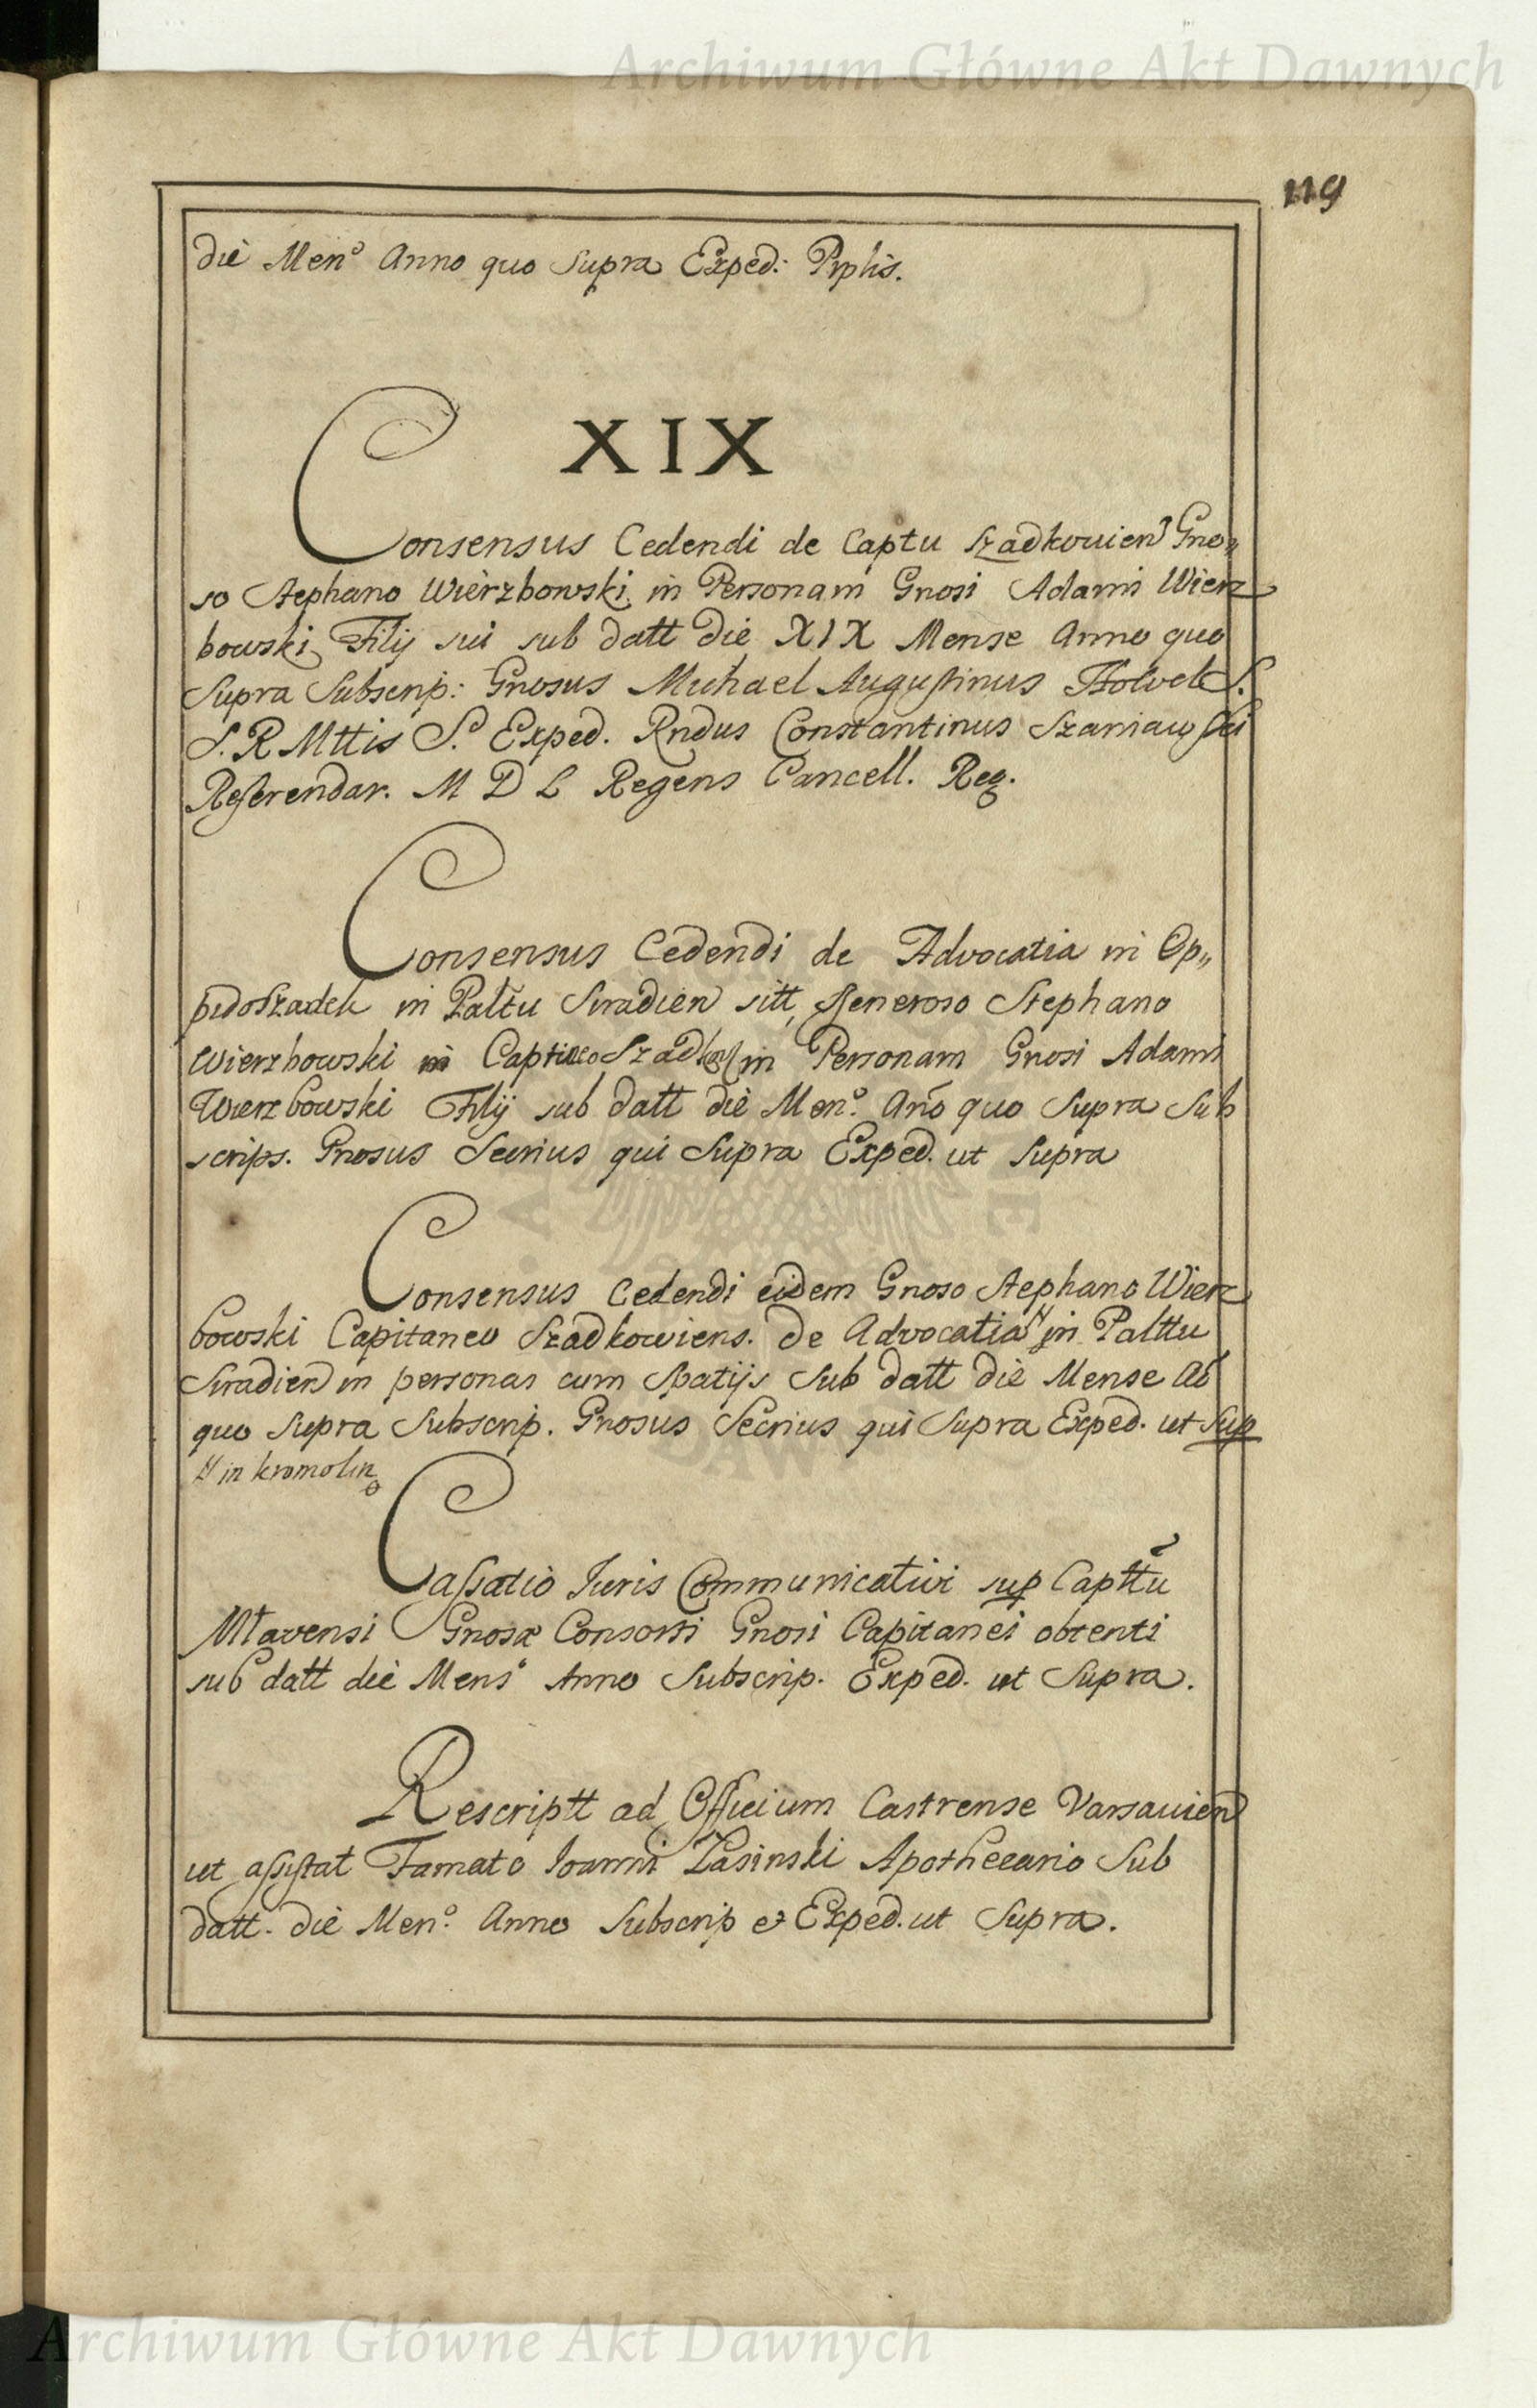 Archiwum Główne Akt Dawnych
119
die Men⁰ Anno quo Supra Exped: Pphis.
XIX
Consensus Cedendi de Captu Szadkovien Gno„
so Stephano Wierzbowski in Personam Gnosi Adami Wierz
bowski Filij sui sub datt die XIX Mense Anno quo
Supra Subscrip: Gnosus Michael Augustinus S.
S. R Mttis S. Exped. Rndus Constantinus Szaniawski
Referendar. M D L Regens Cancell. Reg.
Consensus Cedendi de Advocatia in Op„
pido Szadek in Palttu Siradien sitt, Generoso Stephano
Wierzbowski Szadkov in Personam Gnosi Adami
Wierzbowski Filij sub datt die Men⁰. Ano quo Supra Sub
scrips. Gnosus Secrius qui Supra Exped. ut Supra
Consensus Cedendi eidem Gnoso Stephano Wierz
bowski Capitaneo Szadkowiens. de Advocatia # in Palttu
Siradien in personas cum Spatijs Sub datt die Mense Ao
quo Supra Subscrip. Gnosus Secrius qui Supra Exped. ut Sup
# in kromolin
Cassatio Iuris Communicativi sup Capttu
Mlavensi Gnosæ Consorti Gnosi Capitanei obtenti
sub datt die Mens⁰ Anno Subscrip. Exped. ut Supra.
Rescriptt ad Officium Castrense Varsavien
ut assistat Famato Ioanni Zasinski Apothecario Sub
datt. die Men⁰. Anno Subscrip et Exped. ut Supra.
Archiwum Główne Akt Dawnych